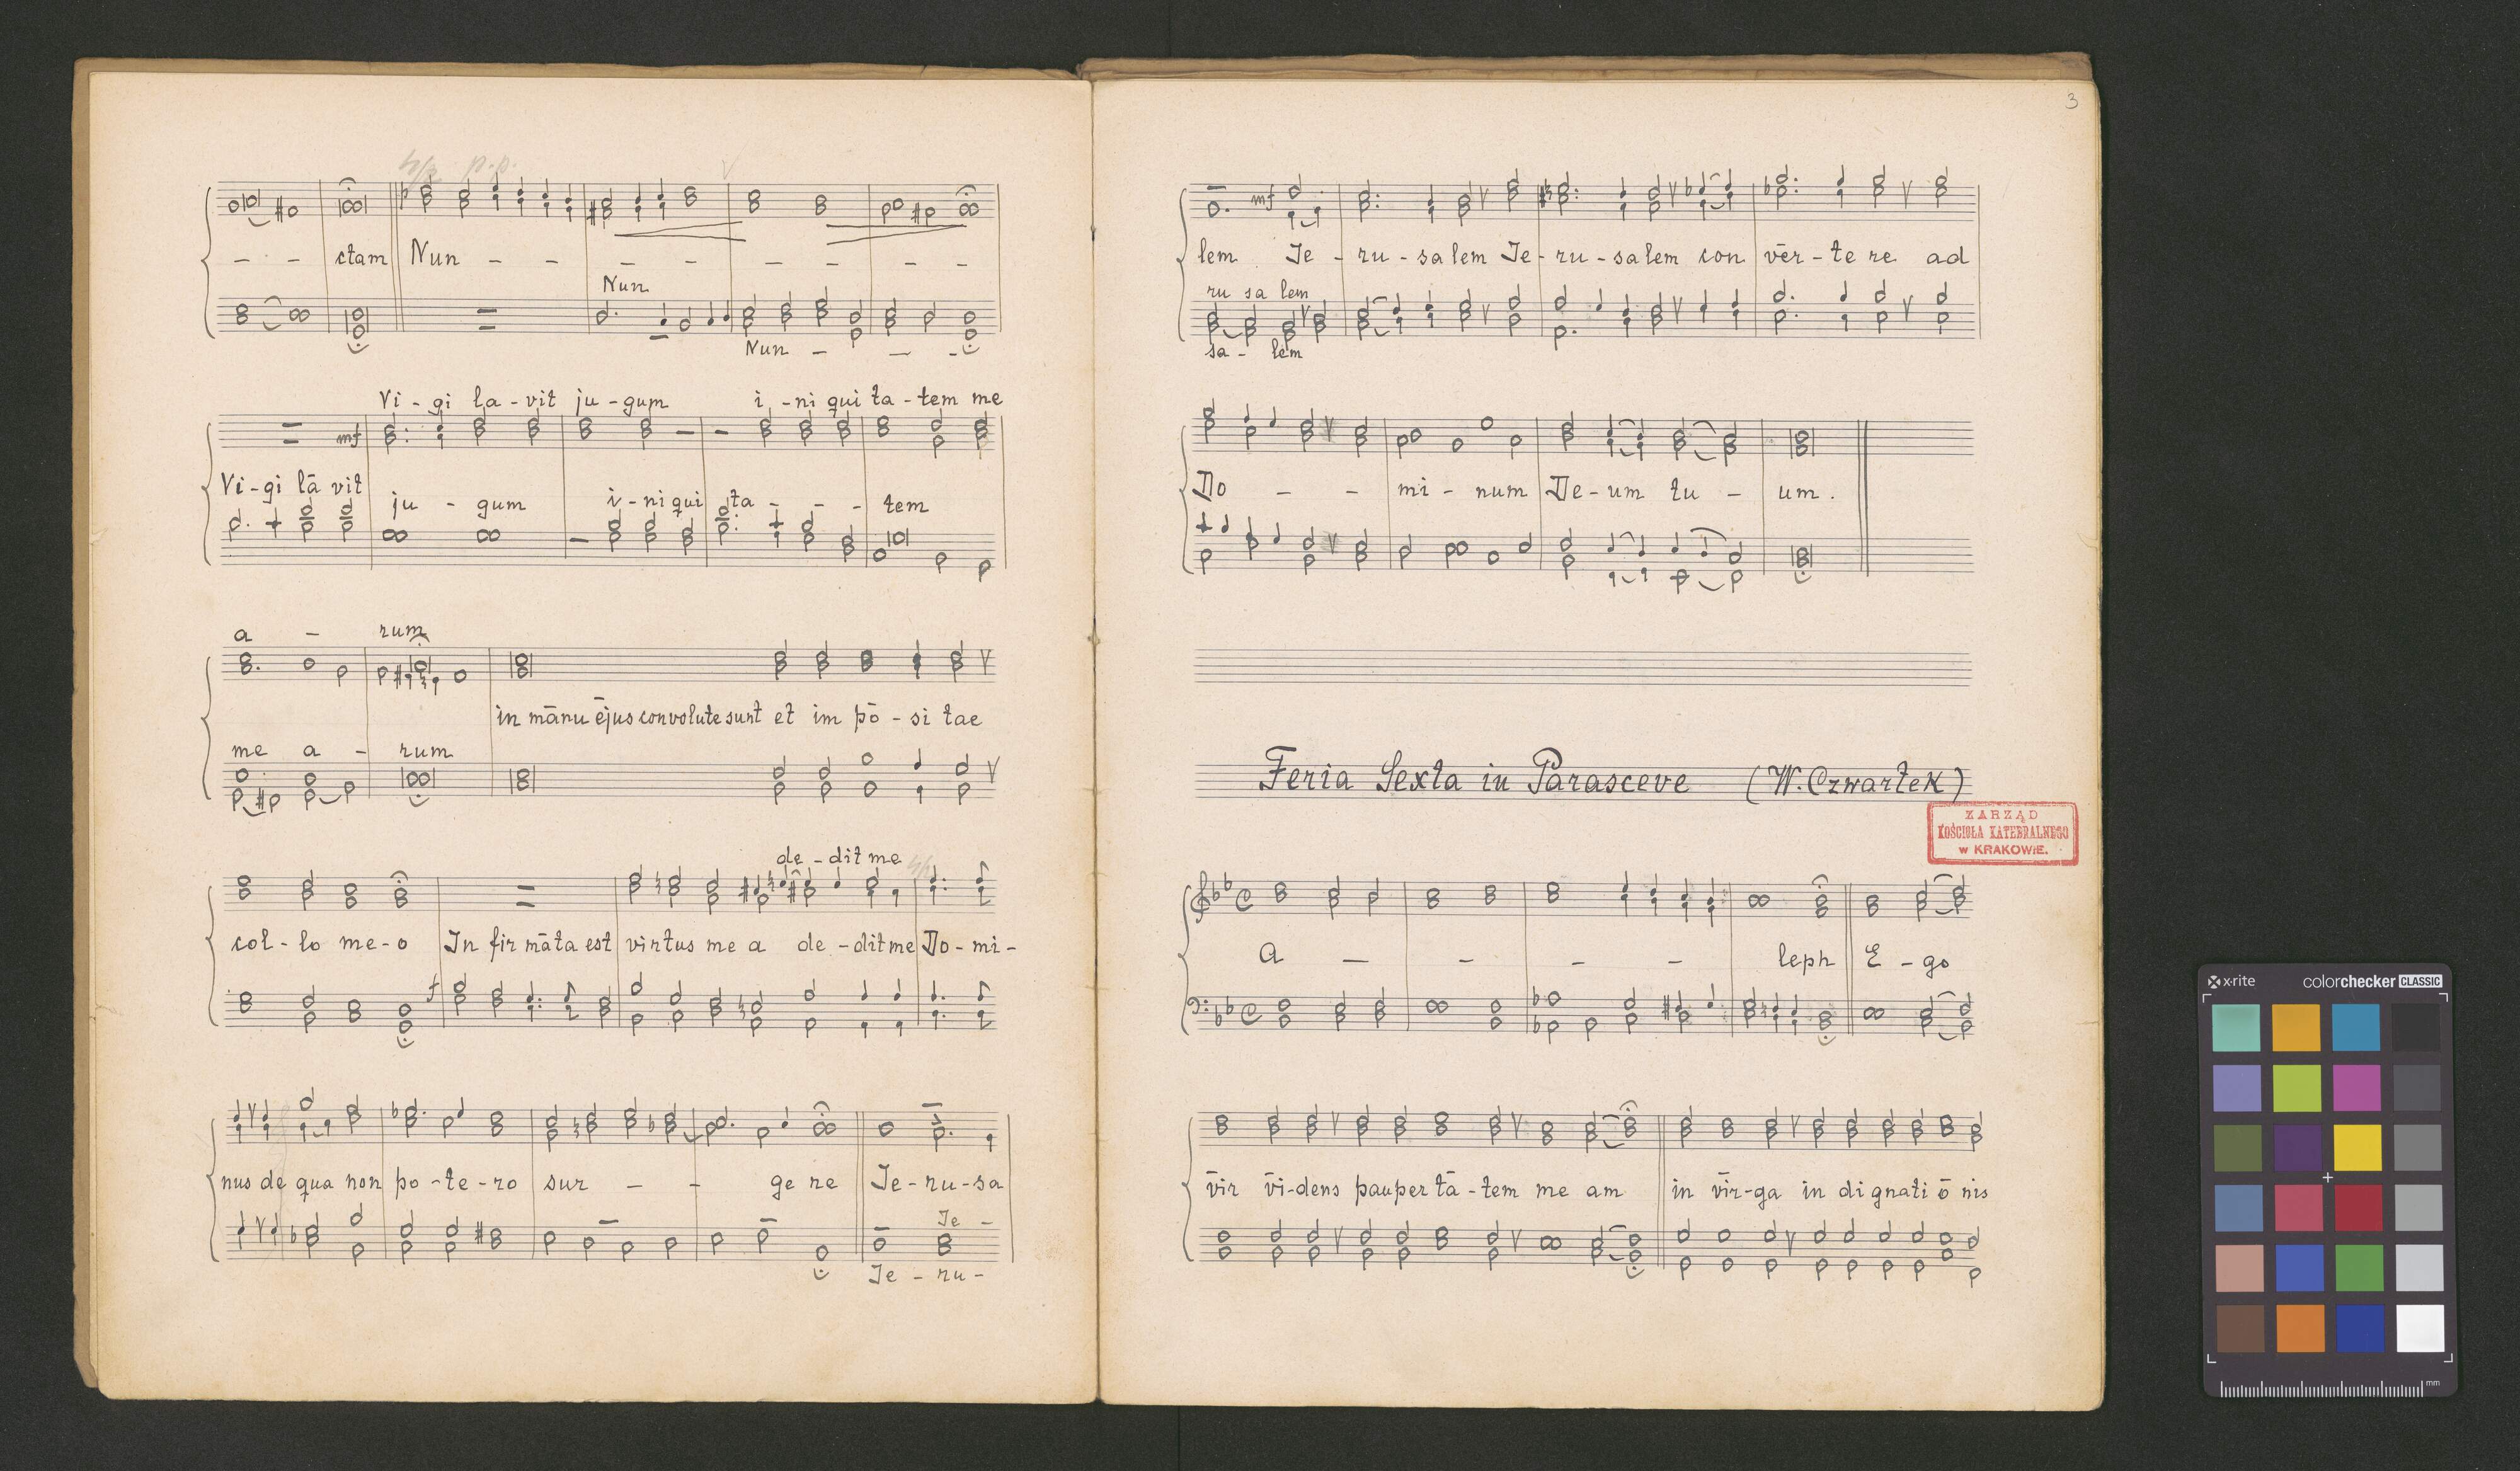 p.p.
- - - ctam Nun - - - - - - - -
Nun
Nun - - -
Vi - gi la - vit ju - gum i - ni qui ta - tem me
mf
Vi - gi lā vit ju - gum i - ni qui ta - - - tem
a - rum
in mānu ējus convolute sunt et im pō - si tae
me a - rum
de - dit me
col - lo me - o In fir māta est virtus me a de - dit me Do - mi -
f
nus de qua non po - te - ro sur - - ge re Je - ru - sa
Je -
Je - ru -
3
mf
lem Je - ru - salem Je - ru - salem con vēr - te re ad
ru sa lem
sa - lem
Do - - mi - num De - um tu - um.
Feria Sexta in Parasceve (W. Czwartek)
ZARZĄD
KOŚCIOŁA KATEDRALNEGO
w KRAKOWIE.
A - - - - leph E - go
vīr vī - dens pauper tā - tem me am in vīr - ga in di gnati ō nis
x-rite colorchecker CLASSIC
mm